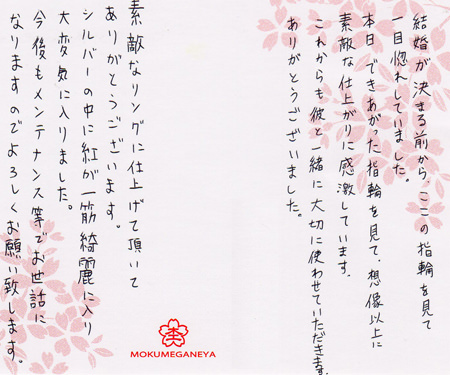 結婚が決まる前から、ここの指輪を見て
一目惚れしていました。
本日、できあがった指輪を見て、想像以上に
素敵な仕上がりに感激しています。
これからも彼と一緒に大切に使わせていただきます。
ありがとうございました。
素敵なリングに仕上げて頂いて
ありがとうございます。
シルバーの中に紅が一筋綺麗に入り
大変気に入りました。
今後もメンテナンス等でお世話に
なりますのでよろしくお願い致します。
MOKUMEGANEYA